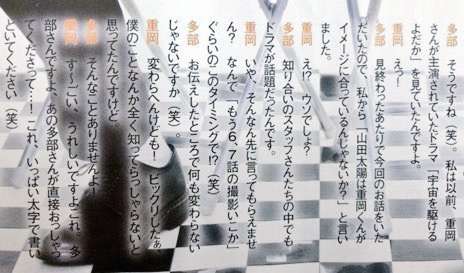 多部 そうですね(笑)。私は以前、重岡
さんが主演されていたドラマ「宇宙を駆ける
よだか」を見ていたんですよ。
重岡 えっ!
多部 見終わったあたりで今回のお話をいた
だいたので、私から「山田太陽は重岡くんが
イメージに合っているんじゃないか?」と言い
重岡 え!? ウソでしょ?
多部 知り合いのスタッフさんたちの中でも
ドラマが話題だったんです。
重岡 いや、そんなん先に言ってもらえませ
ん? なんで「もう6、7話の撮影いこか」
ぐらいのこのタイミングで!?(笑)
多部 お伝えしたところで何も変わらない
じゃないですか(笑)。
重岡 変わらへんけども! ビックリしたぁ。
僕のことなんか全く知ってらっしゃらないと
思ってたんですけど。
多部 そんなことありませんよ!
重岡 す〜ごい、うれしいですよこれ。多
部さんですよ、あの多部さんが直接おっしゃっ
てくださって…! これ、いっぱい太字で書い
といてください(笑)